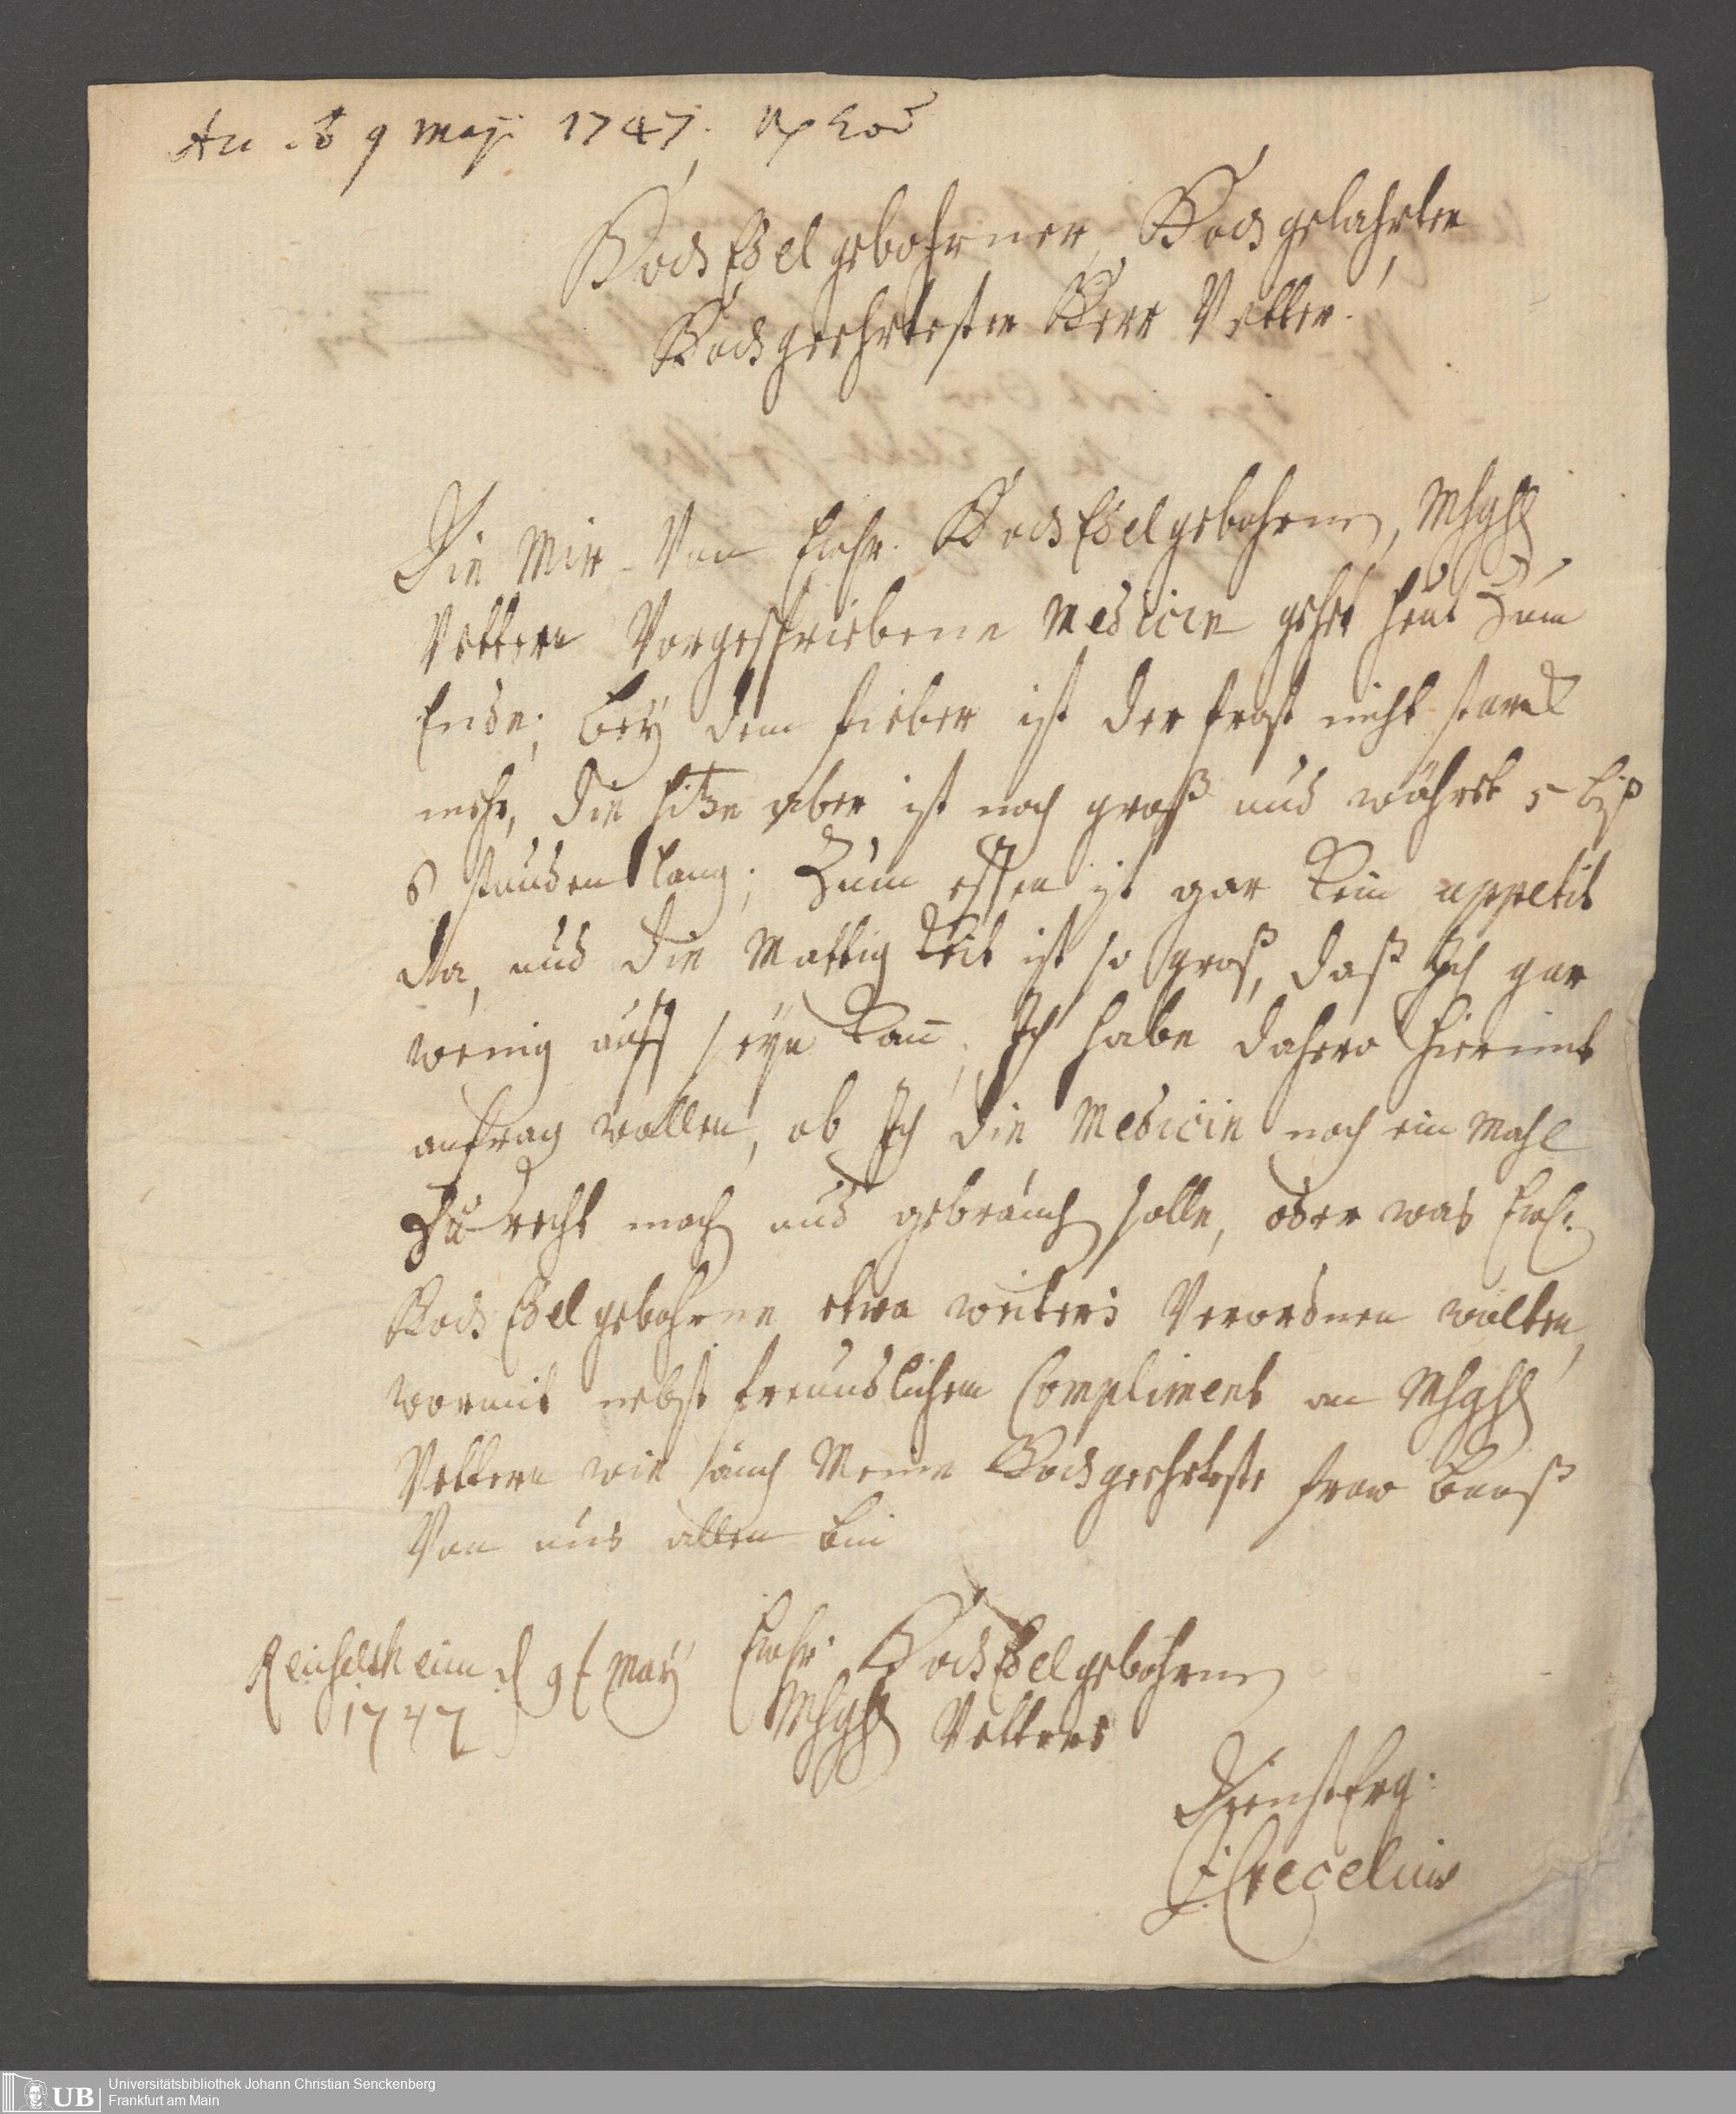 9 Maji 1747.
HochEdelgebohrner, Hochgelahrter
Hochgeehrtester Herr Vetter!
Die Mir Von Ewhr. HochEdelgebohrnen, Mhghl
Vettern Vorgeschriebene Medicin gehet heut Zum
Ende; bey dem fieber ist der frost nicht starck
mehr, die hitze aber ist noch groß und währet 5 biß
6 stunden lang; Zum essen ist gar kein appetit
da, und die Mattigkeit ist so groß, daß Ich gar
wenig auff seyn kan̅; Ich habe dahero hiermit
anfragen wollen, ob Ich die Medicin noch ein Mahl
Zu recht machen und gebrauchen solle, oder was Ewhr.
HochEdelgebohrne etwa weiters Verordnen wolten,
wormit nebst freundlichem Compliment an Mhghl
Vettern wie auch Meine Hochgeehrteste fraw Baaß
Von uns allen bin
Reichelsheim d 9t May Ewhr. HochEdelgebohrnen
1747 Mhghl Vettern
DienstErg.
Cregelius
Universitätsbibliothek Johann Christian Senckenberg
Frankfurt am Main
UB